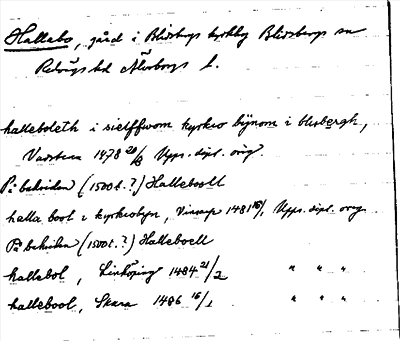 Hallebo, gård i Blidsbergs kyrkby Blidsbergs sn
Redvägs hd Älvsborgs l.
halleboleth i sielffwom kyrkio bynom i blesbergh,
Vadstena 1478 20/8 Upps. dipl. orig.
På baksidan (1500t.?) Halleboell
halla bool i kyrkiobyn, 1481 Upps. dipl. orig
På baksidan (1500t.?) Halleboell
hallebol, Linköping 1484 21/2 " " "
hallebool, Skara 1486 16/1 " " "